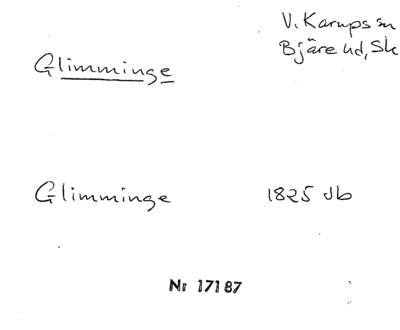 V. Karups sn
Bjäre hd, Sk
Glimminge
Glimminge 1825 Jb
Nr 17187